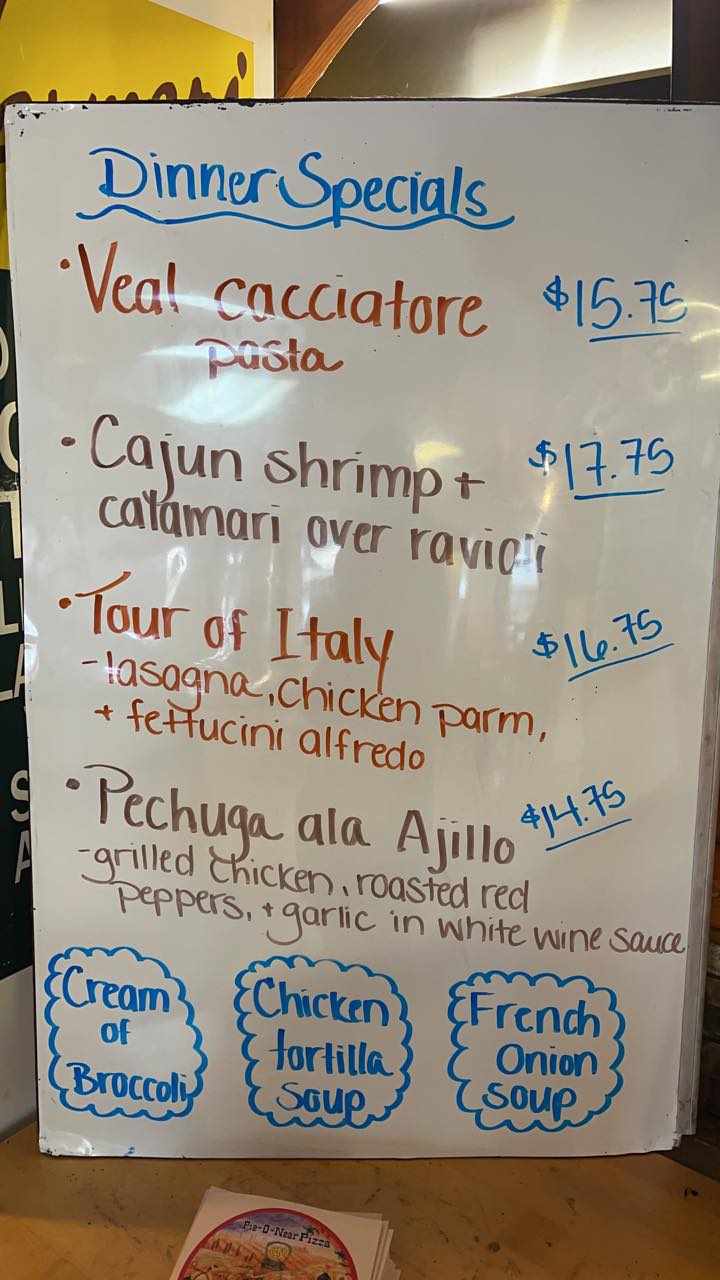 Dinner Specials
• Veal cacciatore $15.75
pasta
• Cajun shrimp + $17.75
calamari over ravioli
• Tour of Italy $16.75
-lasagna, chicken parm,
+ fettucini alfredo
• Pechuga ala Ajillo $14.75
-grilled chicken, roasted red
peppers, + garlic in white wine sauce
Cream
of
Broccoli
Chicken
tortilla
soup
French
Onion
soup
Pie-O-Near Pizza